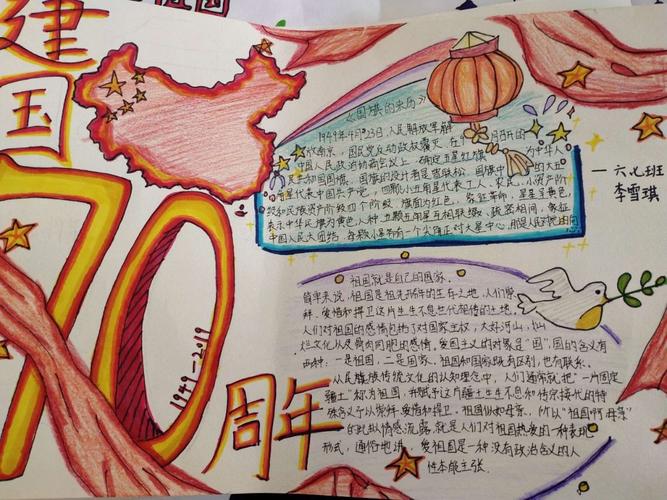 祖国
建
国
70
周年
1949-2019
《国旗的来历》
1949年4月23日,人民解放军解
放南京,国民党反动政权覆灭,在
月召开的
中国人民政治协商会议上,确定五星红旗
为中华人
民共和国国旗。国旗的设计者是曾联松。国旗中
的大五
角星代表中国共产党,四颗小五角星代表工人、农民、小资产阶
级和民族资产阶级四个阶级 旗面为红色,象征革命,星呈黄色,
表示中华民族为黄色人种,五颗五角星互相联缀、疏密相间,象征
中国人民大团结,每颗小星各有一个尖角正对大星中心,
六七班
李雪琪
祖国就是自己的国家。
简单来说,祖国是祖先开辟的生存之地,人们崇
拜、爱惜和捍卫这片生生不息世代相传的土地。
人们对祖国的感情包括了对国家主权,大好河山,灿
烂文化以及骨肉同胞的感情。爱国主义的对象是“国”,国的含义有
两种:一是祖国,二是国家。祖国和国家既有区别,也有联系。
从民族传统文化的认知理念中,人们通常就把“一片固定
疆土”称为祖国,并赋予这片疆土生生不息和传宗接代的特
殊含义予以崇拜、爱惜和捍卫。祖国似如母亲,所以“祖国啊母亲”
的比拟情感流露,就是人们对祖国热爱的一种表现
形式,通俗地讲,爱祖国是一种没有政治含义的人
性本能主张